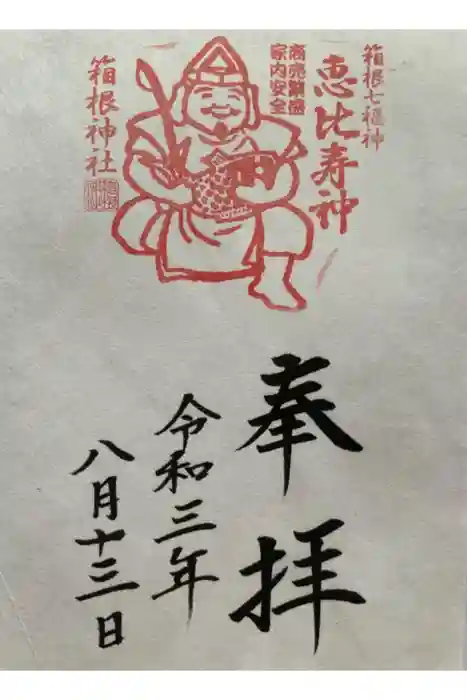 箱根七福神
恵比寿神
商売繁盛
家内安全
箱根神社
奉拝
令和三年
八月十三日